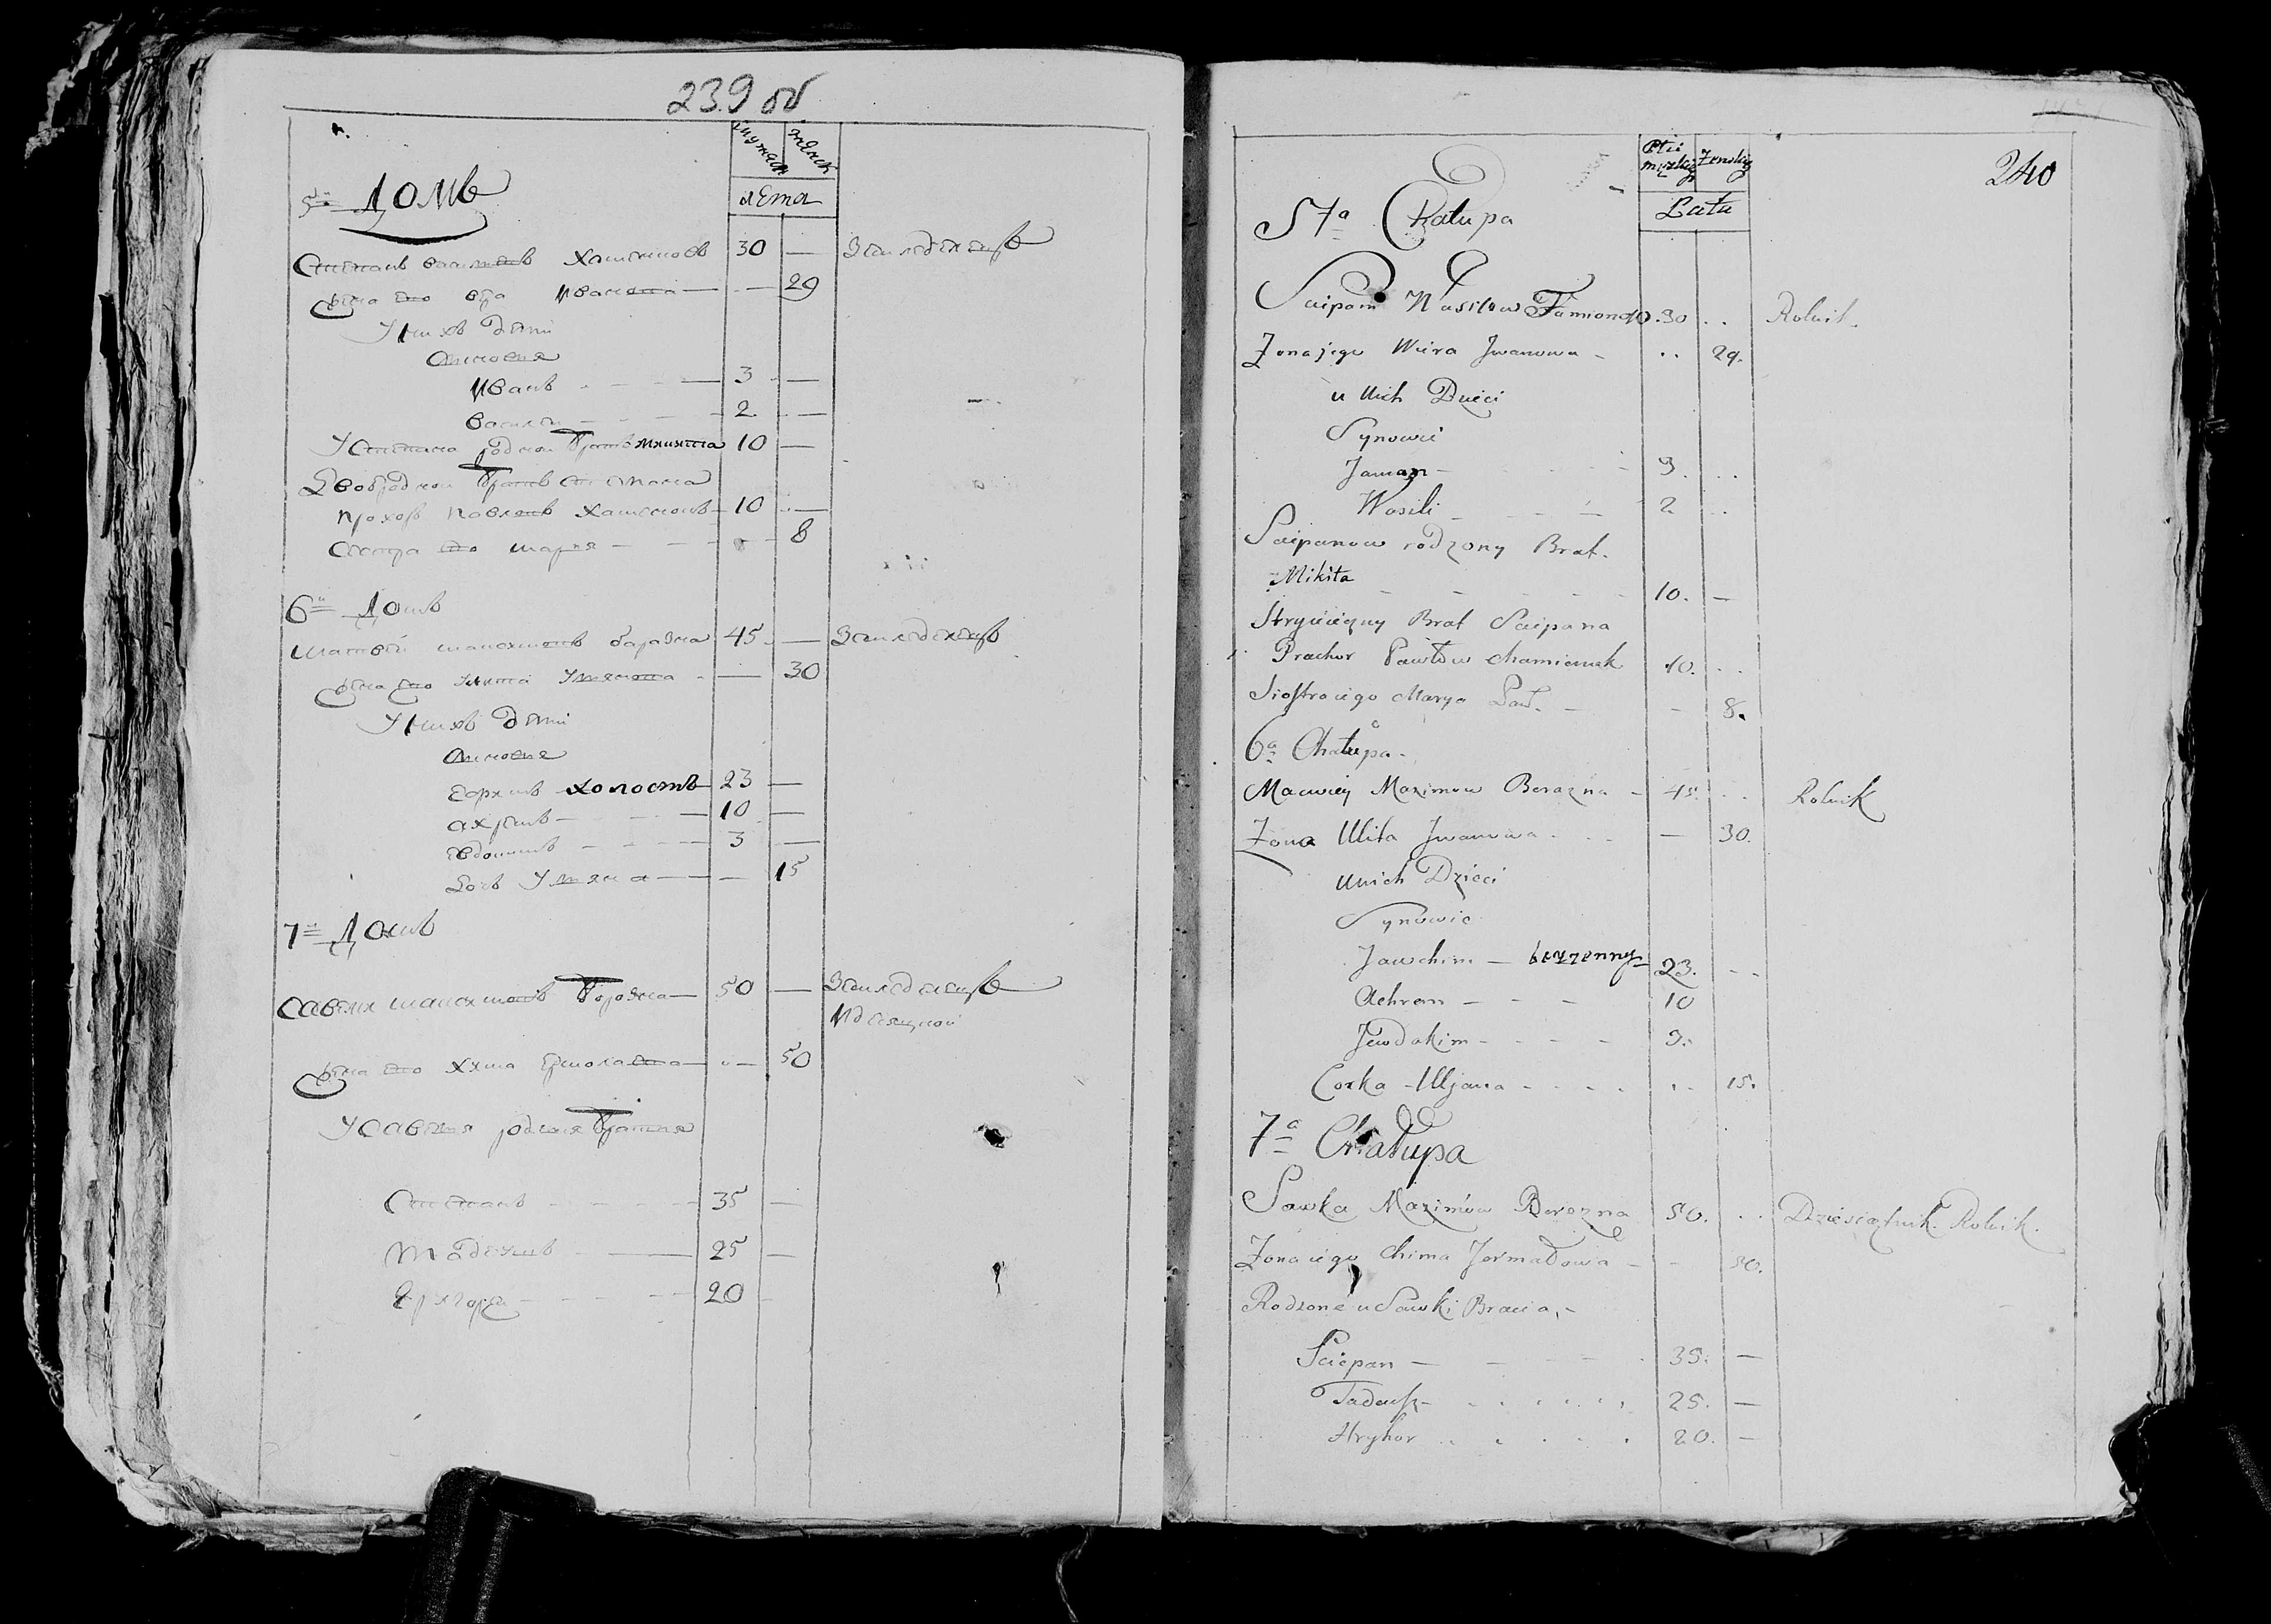 239 об
мужеск женск
лета
5й Домъ
Степанъ Васильевъ Хаменковъ 30 — Земледелецъ
Жена его Вера Иванова — — 29
У нихъ дети
Сыновья
Иванъ 3 —
Василей 2 —
У Степана родной братъ Микита 10 —
Двоюродной братъ Степана
Прохоръ Павловъ 10 —
Сестра его Марья — 8
6й Домъ
Матвей Максимовъ Борозна 45 — Земледелецъ
Жена его Улита — 30
У нихъ дети
Сыновья
холостъ 23 —
Ахремъ — 10 —
Евдокимъ 3 —
Дочь Ульяна — — 15
7й Домъ
Савелей Максимовъ Борозна — 50 — Земледелецъ
И десяцкой
Жена его Хима Ермолаева — 50
У Савелья родныя братья
Степанъ 35 —
Тадеушъ 25 —
Григорей 20
240
Płci
męzkiey Zenskiey
Lata
57a Chałupa
Sciepan Wasilow 30 . . Rolnik.
Zona jego Wiera Jwanowa - . . 29.
u Nich Dzieci
Synowie
Jwan - 3. . .
Wasili 2 . .
Sciepanow rodzony Brat.
Mikita 10. —
Stryieczny Brat Sciepana
Prachor Pawłow Chamionek 10. . .
Siostra iego Marya Paw. - - 8.
6a Chałupa.
Maciwiey Maximow Borozna - 45. . . Rolnik
Zona Ulita Jwanowa . — 30.
u nich Dzieci
Synowie
Jawchim — bezzenny 23. - -
Achrem - 10
Jewdokim - 3.
Corka - Uljana - . . 15.
7a Chałupa
Sawka Maximow Borozna 50. . . Dziesiątnik. Rolnik.
Zona iego Chima Jermałowa - - 50.
Rodzone u Sawki Bracia, -
Sciepan — 35. —
Tadeusz - 25. —
Hryhor 20. —